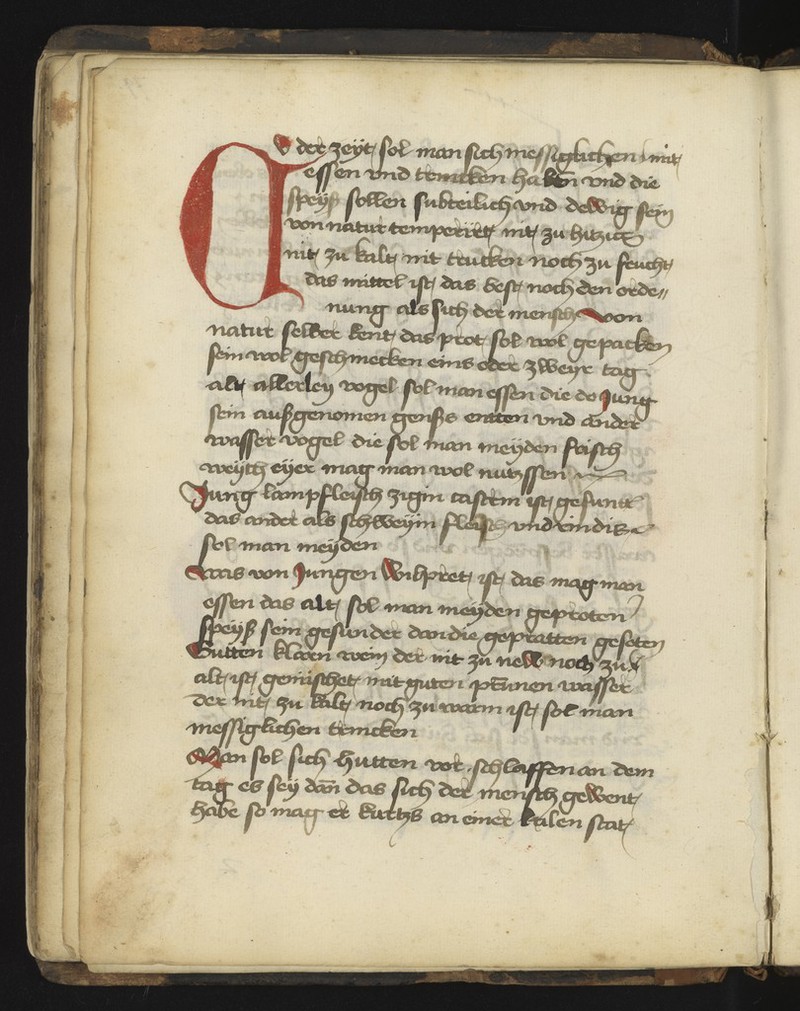 Cv der zeyt sol man sich messiglichen mit
essen vnd trincken haben vnd die
speyß sollen subteilich vnd dewig sein
von natur temperiret nit zu hitzick
nit zu kalt nit trucken noch zu feucht
das mittel ist das best noch den orde//
nung als sich der mensch von
natur selber kent das prot sol wol gepacken
sein wol geschmecken eins oder zweyr tag
alt allerley vogel sol man essen die do Jung
sein außgenomen genßs entten vnd ander
wasser vogel die sol man meyden frisch
weych eyer mag man wol nutzssen
Jung lampfleisch zigin castrin ist gesunt
das ander als schweyin fleisch vnd rindis
sol man meyden
Was von Jungen Wilpret ist das mag man
essen das alt sol man meyden geproten
speyß sein gesunder dan die gepratten gesoten
Gutten kloren wein der nit zu new noch zu
alt ist gemischet mit guten prunnen wasser
der nit zu kalt noch zu warm ist sol man
messiglichen trincken
Man sol sich hutten vor schlaffen an dem
tag es sey dan das sich der mensch gewent
habe so mag er kurtzs an einer kulen stat